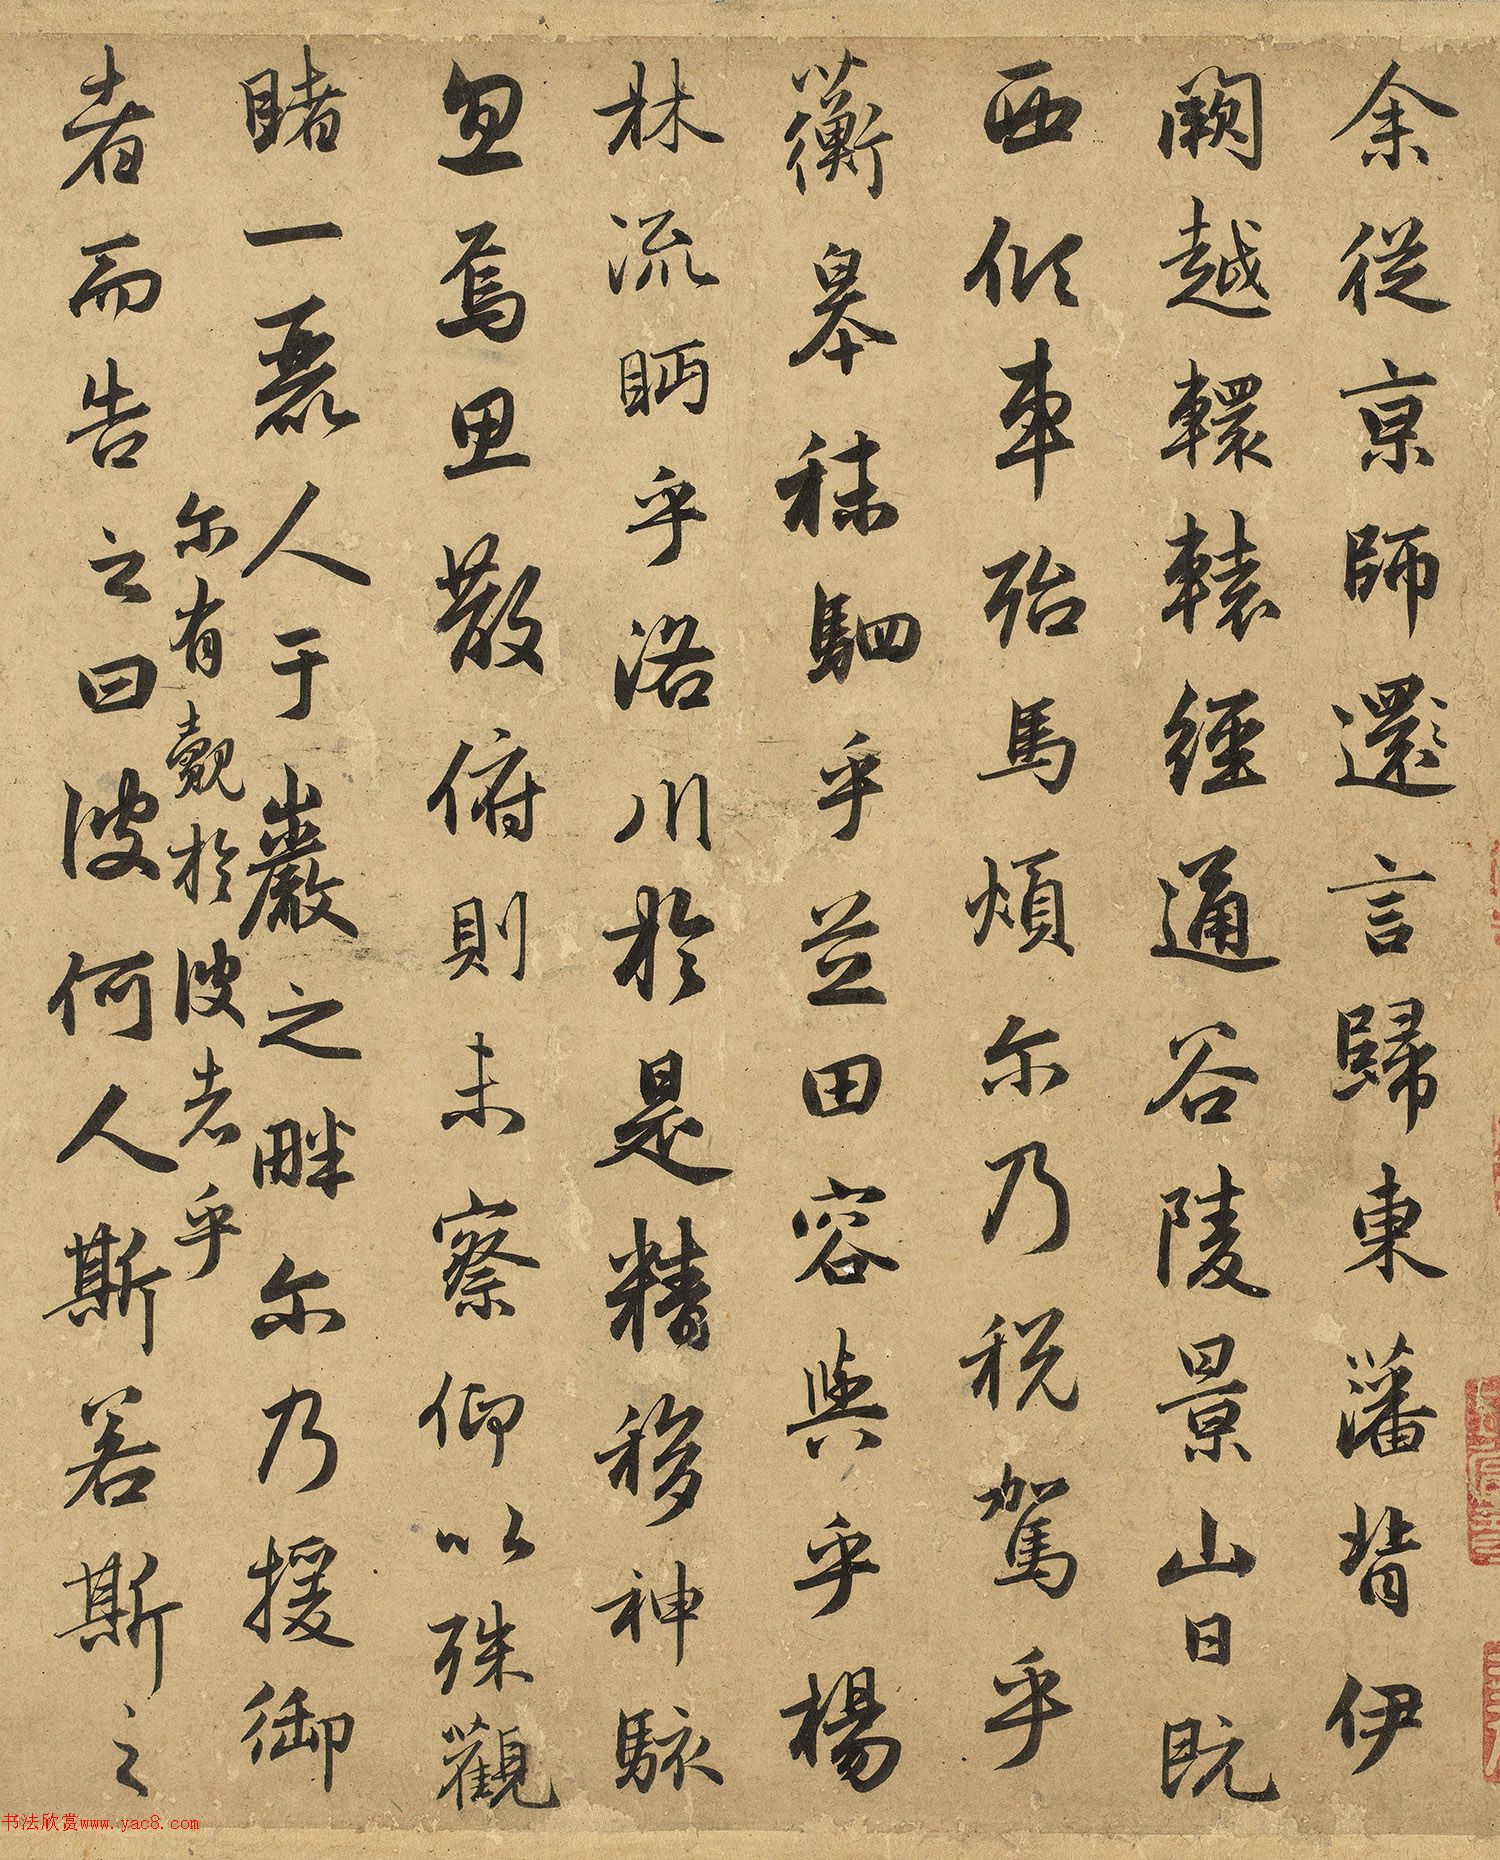 余從京師還言歸東藩背伊
闕越轘轅經通谷陵景山日既
西傾車殆馬煩尔乃税駕乎
蘅皋秣駟乎芝田容與乎楊
林流眄乎洛川於是精移神駭
忽焉思散俯則未察仰以殊觀
睹一麗人于巖之畔尔乃援御
尔有覿於彼者乎
者而告之曰彼何人斯若斯之
书法欣赏www.yac8.com